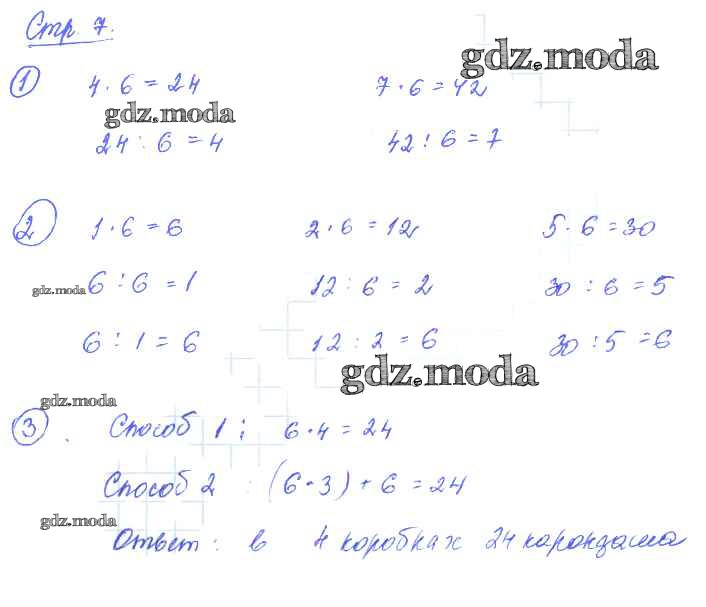 Стр. 7.
gdz.moda
1 4 · 6 = 24 7 · 6 = 42
gdz.moda
24 : 6 = 4 42 : 6 = 7
2 1 · 6 = 6 2 · 6 = 12 5 · 6 = 30
gdz.moda 6 : 6 = 1 12 : 6 = 2 30 : 6 = 5
6 : 1 = 6 12 : 2 = 6 30 : 5 = 6
gdz.moda
gdz.moda
3. Способ 1 : 6 · 4 = 24
Способ 2 : (6 · 3) + 6 = 24
gdz.moda
Ответ : в 4 коробках 24 карондаша